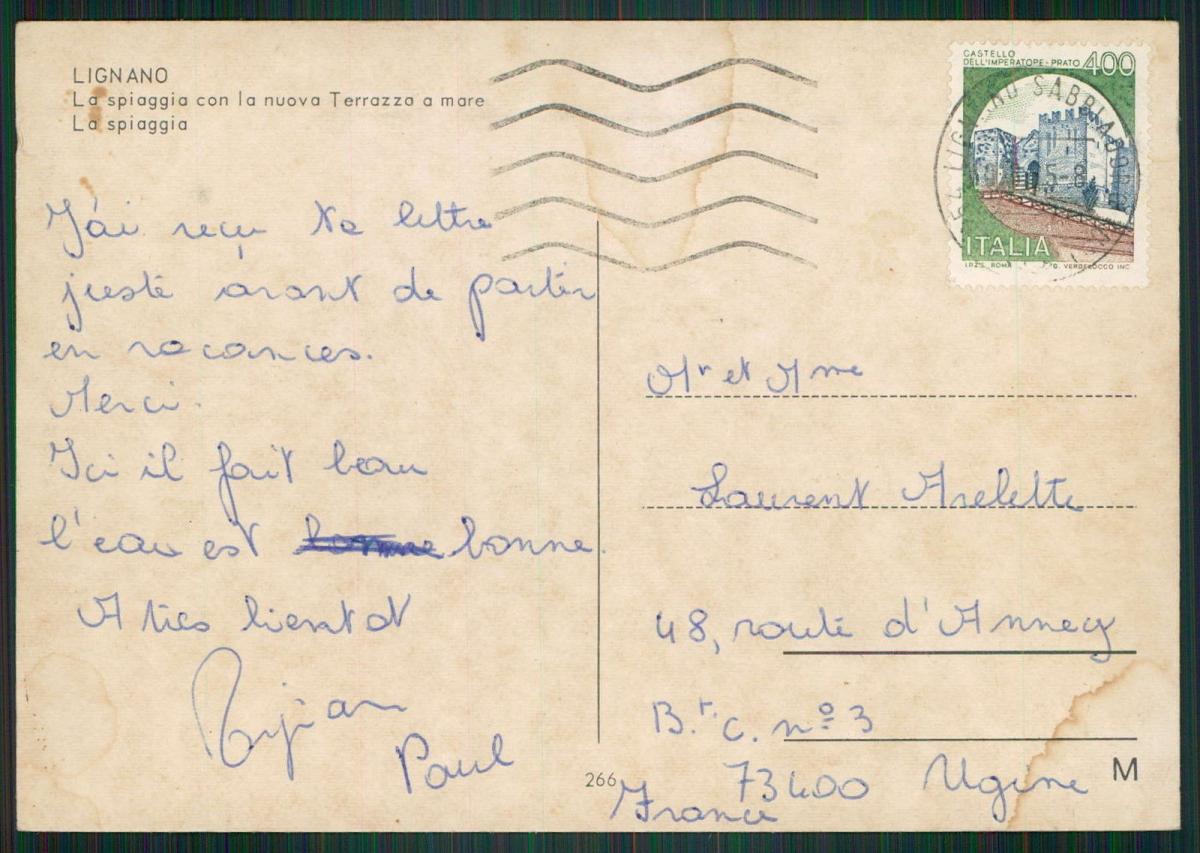 LIGNANO
La spiaggia con la nuova Terrazza a mare
La spiaggia
CASTELLO
DELL'IMPERATORE - PRATO 400
ITALIA
I.P.Z.S. ROMA
LIGNANO SABBIADORO
J'ai reçu ta lettre
juste avant de partir
en vacances.
Merci.
Ici il fait beau
l'eau est bonne.
A très bientot
Paul
Mr et Mme
Laurent Arlette
48, route d'Annecy
Bt. C. nº 3
73400 Ugine
France
266
M